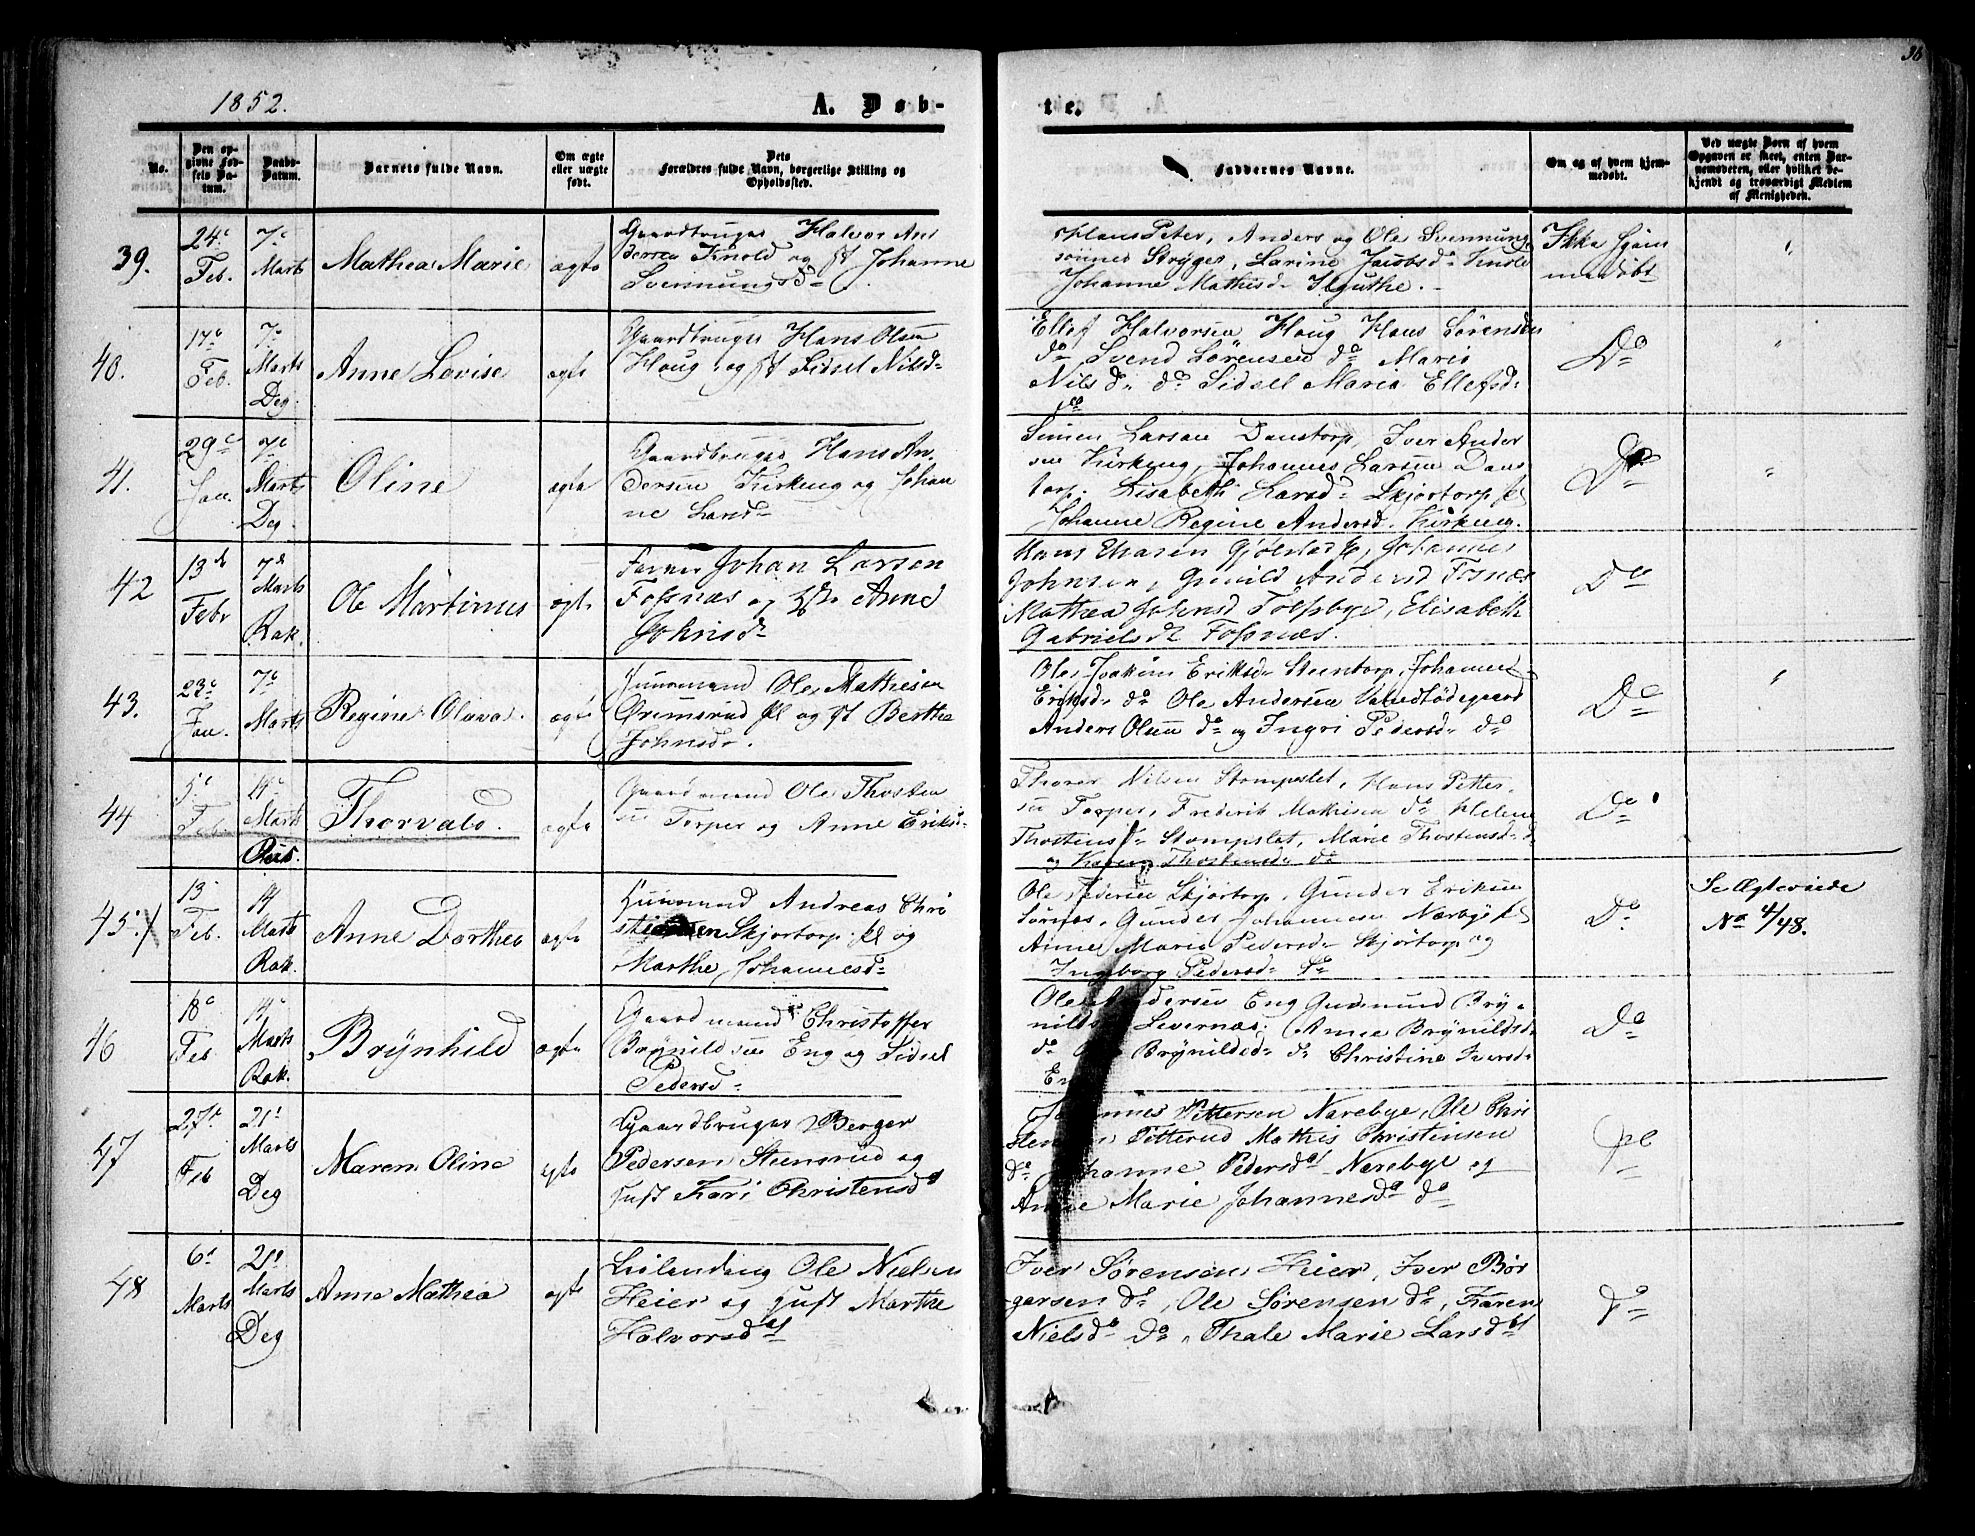 36
1852.
A. Døb-
te.
No.
Den op-
givne Fød-
sels Da-
tum.
Daabs-
Datum.
Barnets fulde Navn.
Om ægte
eller uægte
født.
Dets
Forældres fulde Navn, borgerlige Stilling og
Opholdssted.
Faddernes Navne.
Om og af hvem hjem-
medøbt.
Ved uægte Børn af hvem
Opgaven er skeet, enten Bar-
nemoderen, eller hvilket be-
kjendt og troværdigt Medlem
af Menigheden.
39.
24
Feb.
7
Marts
Mathea Marie
ægte
Gaardbruger Halvor An
dersen Knold og Johanne
Svennungsd
Hans Peter, Anders og Ole Svennungs
sønner Stryger, Larine Jacobsd Knold
Johanne Mathisd
Ikke hjem
medøbt
40.
17
Feb.
7
Marts
Deg.
Anne Lovise
ægte
Gaardbruger Hans Olsen
Houg og Sidsel Nilsd
Ellef Halvorsen Houg Hans Sørensen
do Svend Sørensen do Marie
Nils d do Sidsel Maria Ellefsd
do
Do
41.
29
Jan.
7
Marts
Deg.
Oline
ægte
Gaardbruger Hans An
dersen Kirkeng og Johan
ne Larsd
Simen Larsen Danstorp, Iver Ander
sen Kirkeng, Johannes Larsen Dans
torp. Lisabeth Larsd Skjørtorp
Johanne Regine Andersd. Kirkeng.
Do
42
13
Febr
7
Marts
Rak.
Ole Martinus
ægte
Johan Larsen
Fossnæs og Anne
Johnsd
Hans Johannes
Johnsen, Gunild Andersd Fosnæs
Mathea Johnsd Tolfsbye, Elisabeth
Gabrielsd Fossnæs.
Do
43.
23
Jan.
7
Marts
Regine Olava.
ægte
Huusmand Ole Mathisen
Grimsrud og Berthe
Johnsd.
Ole Joakim Eriksd Steentorp, Johannes
Eriksd do Ole Andersen Valdødegaard
Anders Olsen do og Ingri Pedersd do
Do
44
5
Feb.
14
Marts
Thorvald.
ægte
Gaardmand Ole Thosten
sen Torper og Anne Eriks
Thorer Nilsen Stompslet, Hans Petter-
sen Torper, Frederik Mathisen do Helene
Thostensd Stompslet, Marie Thostensd
og Karen Thostensd do
Do
45.
13
Feb.
14
Marts
Rak.
Anne Dorthea
ægte
Huusmand Andreas Chri
stiansen Skjørtorp og
Marthe Johannesd
Ole Pedersen Skjørtorp, Gunder Eriksen
Sørnæs, Gunder Johannesen Nærbye
Anne Maria Pedersd Skjørtorp og
Ingborg Pedersd do
Do
Se Ægteviede
No 4/48.
46
18
Feb
14
Marts
Rak.
Brynhild
ægte
Gaardmand Christoffer
Brynildsen Eng og Sidsel
Pedersd
Ole Andersen Eng Gudmund Bry-
nilds Levernæs, Anne Brynildsd
do Brynildsd do Christine Iversd
Eng
Do
47
27
Feb
21
Marts
Deg
Maren Oline
ægte
Gaardbruger Berger
Pedersen Steensrud og
Kari Christensd
Johannes Pettersen Narebye, Ole Chri
stensen Petterud Mathis Christinsen
do Johanne Pedersd Narebye og
Anne Marie Johannesd do
Do
48
6
Marts
21
Marts
Deg
Anne Mathea
ægte
Leilending Ole Nielsen
Heier og Marthe
Halvorsd
Iver Sørensen Heier, Iver Bør
gersen do, Ole Sørensen do, Karen
Nielsd do, Thale Marie Larsd
Do